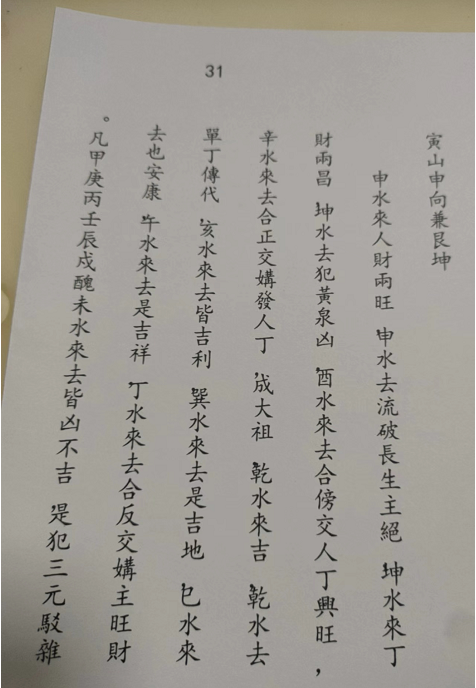 31
寅山申向兼艮坤
申水來人財兩旺 申水去流破長生主絕 坤水來丁
財兩昌 坤水去犯黃泉凶 酉水來去合傍交人丁興旺,
辛水來去合正交媾發人丁 成大祖 乾水來吉 乾水去
單丁傳代 亥水來去皆吉利 巽水來去是吉地 巳水來
去也安康 午水來去是吉祥 丁水來去合反交媾主旺財
。凡甲庚丙壬辰戍醜未水來去皆凶不吉 是犯三元駁雜